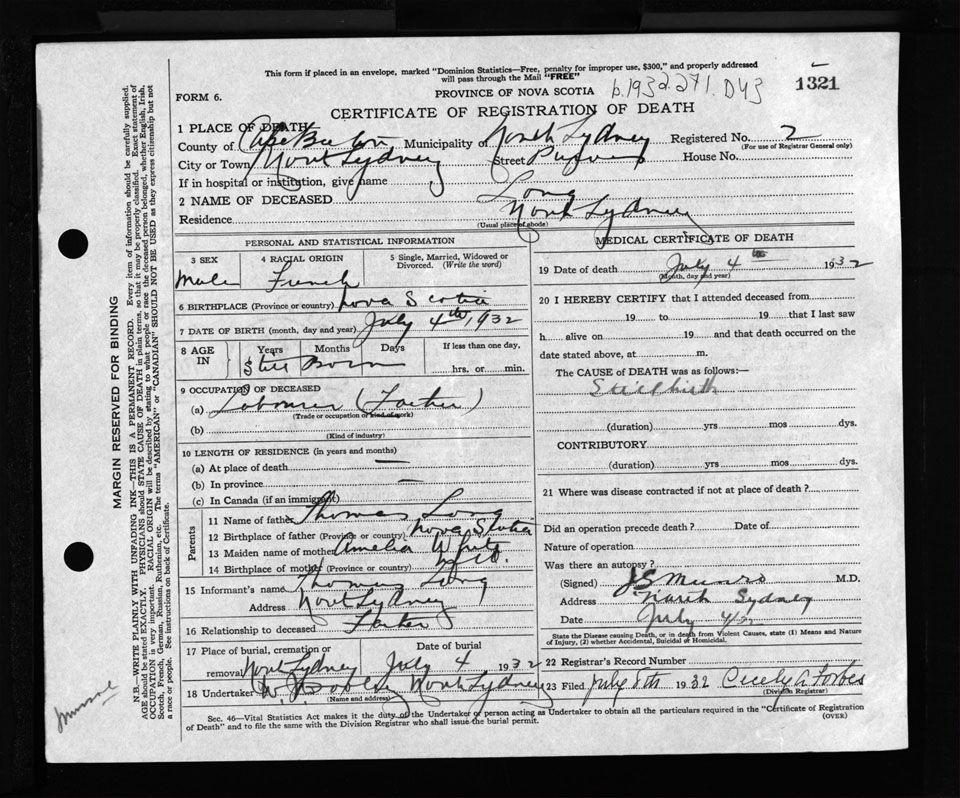 This form if placed in an envelope, marked "Dominion Statistics—Free, penalty for improper use, $300," and properly addressed
will pass through the Mail "FREE"
1321
FORM 6.
PROVINCE OF NOVA SCOTIA
b.1932.271.D43
CERTIFICATE OF REGISTRATION OF DEATH
1 PLACE OF DEATH
County of Cape Breton Municipality of North Sydney Registered No. 2
(For use of Registrar General only)
City or Town North Sydney Street House No.
If in hospital or institution, give name
2 NAME OF DECEASED Long
Residence North Sydney
(Usual place of abode)
PERSONAL AND STATISTICAL INFORMATION
3 SEX 4 RACIAL ORIGIN 5 Single, Married, Widowed or
Divorced. (Write the word)
Male French
6 BIRTHPLACE (Province or country) Nova Scotia
7 DATE OF BIRTH (month, day and year) July 4th, 1932
8 AGE IN Years Months Days If less than one day,
Still Born hrs. or min.
9 OCCUPATION OF DECEASED
(a) Labourer (Father)
(Trade or occupation or kind of work)
(b)
(Kind of industry)
10 LENGTH OF RESIDENCE (in years and months)
(a) At place of death —
(b) In province —
(c) In Canada (if an immigrant)
Parents
11 Name of father Thomas Long
12 Birthplace of father (Province or country) Nova Scotia
13 Maiden name of mother Amelia White
14 Birthplace of mother (Province or country)
15 Informant's name Thomas Long
Address North Sydney
16 Relationship to deceased Father
17 Place of burial, cremation or Date of burial
removal North Sydney July 4 1932
18 Undertaker W. J. North Sydney
(Name and address)
MEDICAL CERTIFICATE OF DEATH
19 Date of death July 4 1932
(Month, day and year)
20 I HEREBY CERTIFY that I attended deceased from
19 to 19 that I last saw
h alive on 19 and that death occurred on the
date stated above, at m.
The CAUSE OF DEATH was as follows:—
Stillbirth
(duration) yrs mos dys.
CONTRIBUTORY
(duration) yrs mos dys.
21 Where was disease contracted if not at place of death?
Did an operation precede death? Date of
Nature of operation
Was there an autopsy?
(Signed) J S Munro M.D.
Address North Sydney
Date July 4/32
State the Disease causing Death, or in death from Violent Causes, state (1) Means and Nature
of Injury, (2) whether Accidental, Suicidal or Homicidal.
22 Registrar's Record Number
23 Filed July 8th 1932 Cecily A Forbes
(Division Registrar)
Sec. 46—Vital Statistics Act makes it the duty of the Undertaker or person acting as Undertaker to obtain all the particulars required in the "Certificate of Registration
of Death" and to file the same with the Division Registrar who shall issue the burial permit.
(OVER)
MARGIN RESERVED FOR BINDING
N.B.—WRITE PLAINLY WITH UNFADING INK—THIS IS A PERMANENT RECORD. Every item of information should be carefully supplied.
AGE should be stated EXACTLY. PHYSICIANS should STATE CAUSE OF DEATH in plain terms, so that it may be properly classified. Exact statement of
OCCUPATION is very important. RACIAL ORIGIN will be described by stating to what people or race the deceased person belonged, whether English, Irish,
Scotch, French, German, Russian, Ruthenian, etc. The terms "AMERICAN" or "CANADIAN" SHOULD NOT BE USED as they express citizenship but not
a race or people. See instructions on back of Certificate.